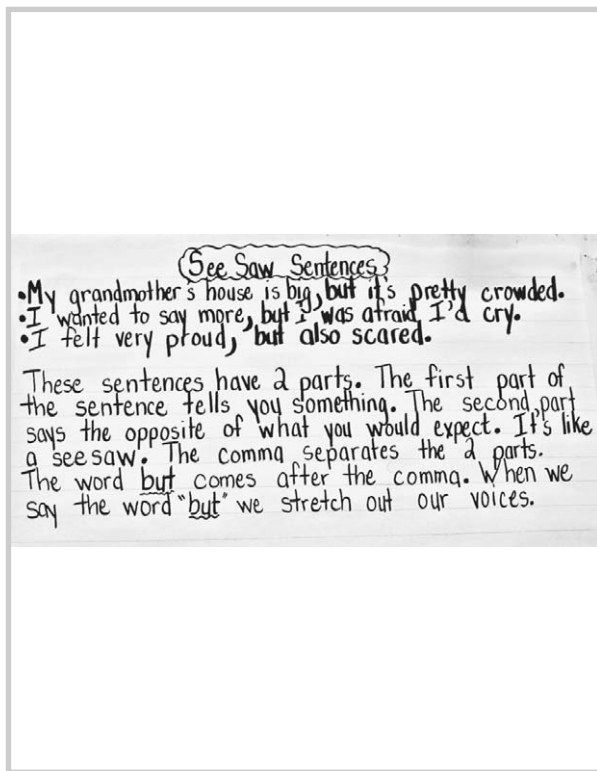 See Saw Sentences
•My grandmother's house is big, but it's pretty crowded.
•I wanted to say more, but I was afraid I'd cry.
•I felt very proud, but also scared.
These sentences have 2 parts. The first part of
the sentence tells you something. The second part
says the opposite of what you would expect. It's like
a seesaw. The comma separates the 2 parts.
The word but comes after the comma. When we
say the word "but" we stretch out our voices.